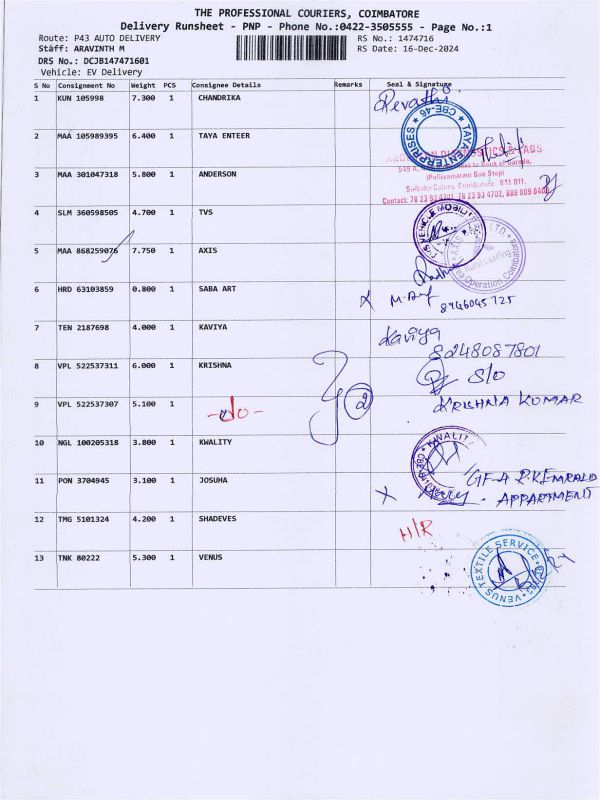 THE PROFESSIONAL COURIERS, COIMBATORE
Delivery Runsheet - PNP - Phone No.:0422-3505555 - Page No.:1
Route: P43 AUTO DELIVERY RS No.: 1474716
Staff: ARAVINTH M RS Date: 16-Dec-2024
DRS No.: DCJB147471601
Vehicle: EV Delivery
S No Consignment No Weight PCS Consignee Details Remarks Seal & Signature
1 KUN 105998 7.300 1 CHANDRIKA Revathi
2 MAA 105989395 6.400 1 TAYA ENTEER
TAYA ENTERPRISES CBE-46
3 MAA 301047318 5.800 1 ANDERSON
(Pullivamaram Bus Stop)
Saibaba Colony, Coimbatore
4 SLM 360598505 4.700 1 TVS
5 MAA 868259076 7.750 1 AXIS
6 HRD 63103859 0.800 1 SABA ART
7 TEN 2187698 4.000 1 KAVIYA Kaviya
8248087801
8 VPL 522537311 6.000 1 KRISHNA S/O
KRISHNA KUMAR
9 VPL 522537307 5.100 1 -do- 2
10 NGL 100205318 3.800 1 KWALITY
KWALITY
11 PON 3704945 3.100 1 JOSUHA
APPARTMENT
12 TMG 5101324 4.200 1 SHADEVES H/R
13 TNK 80222 5.300 1 VENUS
VENUS TEXTILE SERVICE